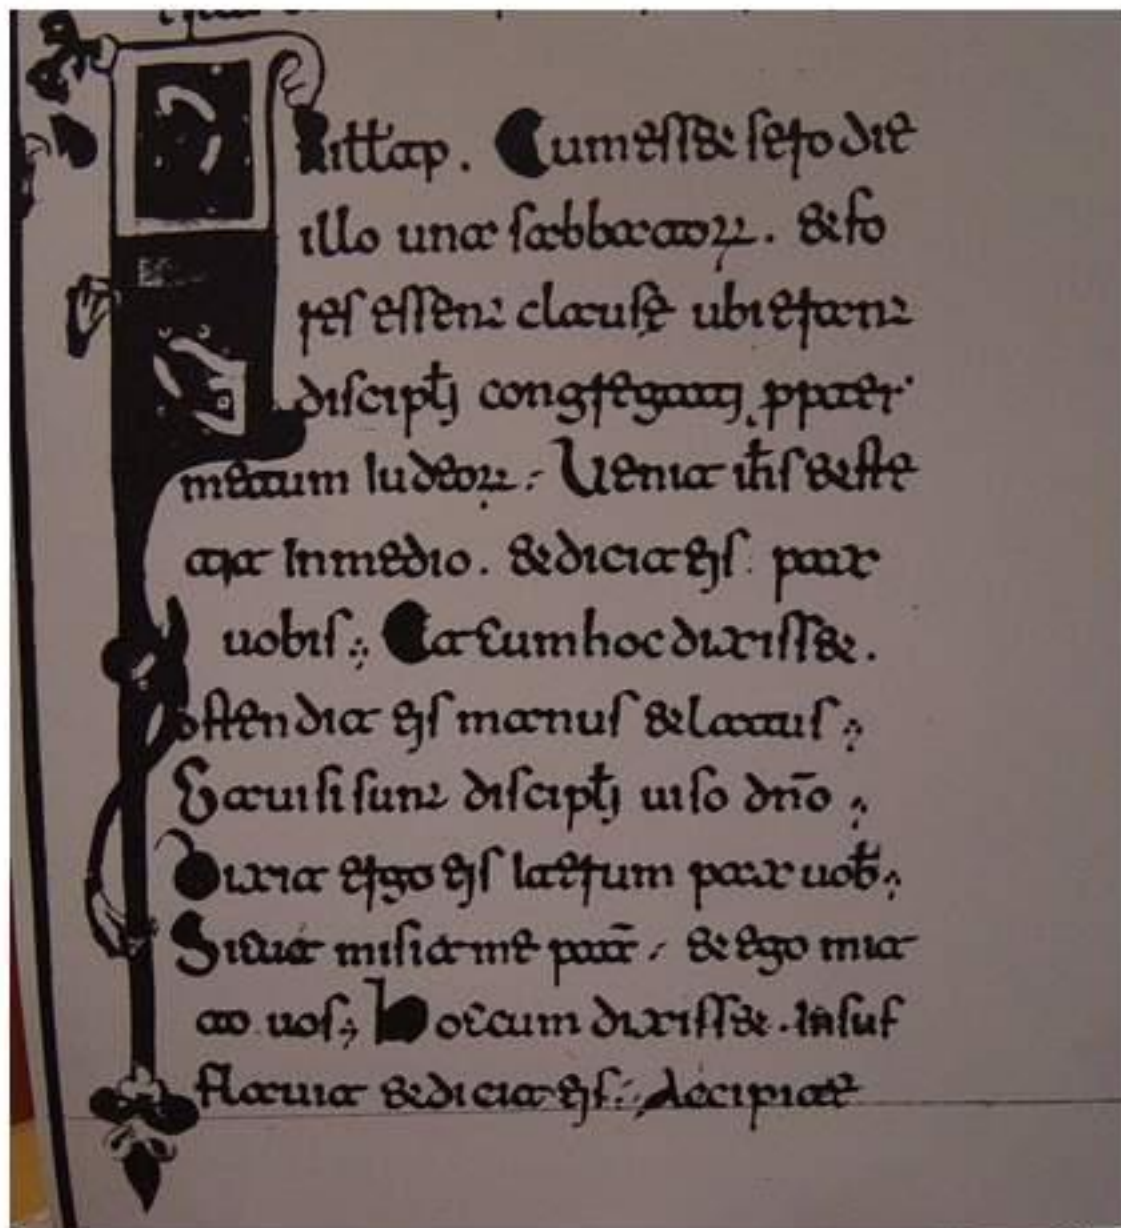 Cum ess& sero die
illo una sabbatoꝝ. & fo
res essent clausę ubi erant
discipłi congregati ꝓpter
metum Iudeoꝝ. Uenit ih̄s & ste
tit In medio. & dicit eis pax
uobis. Et cum hoc dixiss&.
ostendit eis manus & latus.
Gauisi sunt discipłi uiso dn̄o.
Dixit ergo eis Iterum pax uob̄.
Sicut misit me pat̄. & ego mit
to uos. hoc cum dixiss&. Insuf
flauit & dicit eis. Accipite